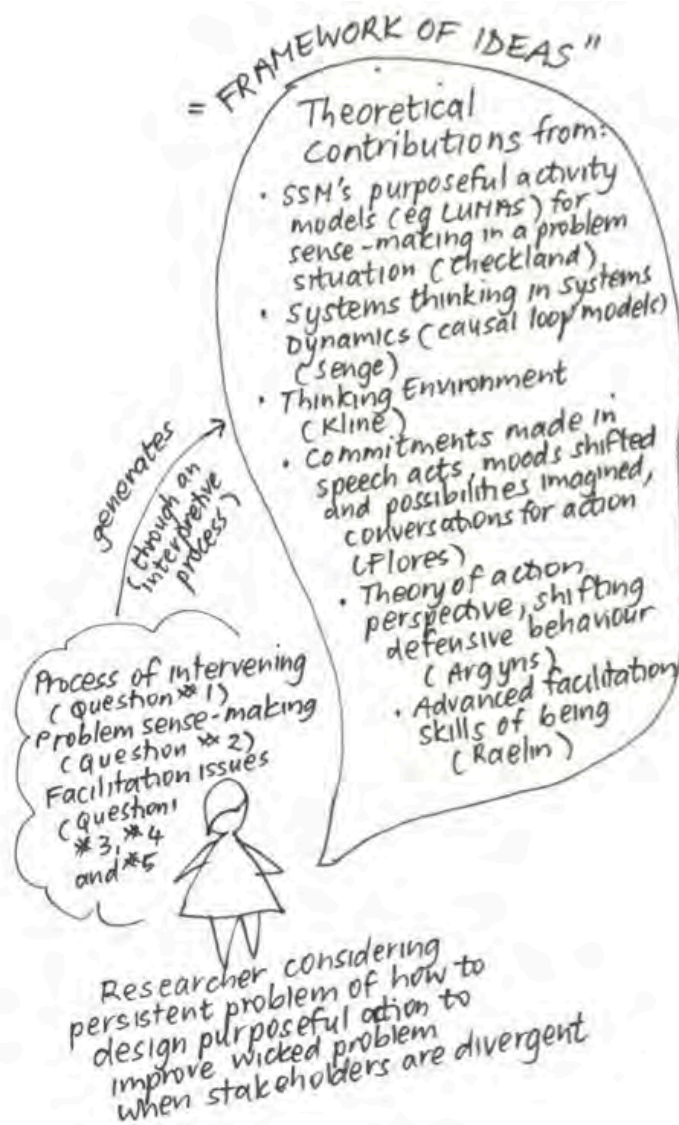 = FRAMEWORK OF IDEAS"
Theoretical
Contributions from:
• SSM's purposeful activity
models (eg LUMAS) for
sense-making in a problem
situation (Checkland)
• Systems thinking in Systems
Dynamics (causal loop models)
(Senge)
• Thinking Environment
(Kline)
• Commitments made in
speech acts, moods shifted
and possibilities imagined,
conversations for action
(Flores)
• Theory of action
perspective, shifting
defensive behaviour
(Argyris)
• Advanced facilitation
skills of being
(Raelin)
generates
(through an
interpretive
process)
Process of intervening
(Question #1)
Problem sense-making
(Question #2)
Facilitation issues
(Question
#3, #4
and #5
Researcher considering
persistent problem of how to
design purposeful action to
improve wicked problem
when stakeholders are divergent